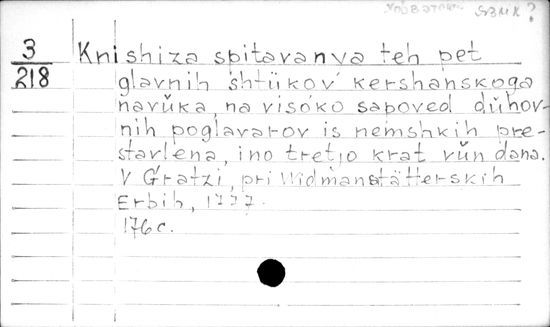 SBMK?
3
218
Knishiza spitavanya teh pet
glavnih shtükov kershanskoga
navŭka, na visóko sapoved dŭhov-
nih poglavarov is nemshkih pre-
stavlena, ino tretjo krat vŭn dana.
V Gratzi, pri Widmanstätterskih
Erbih, 1777.
176c.